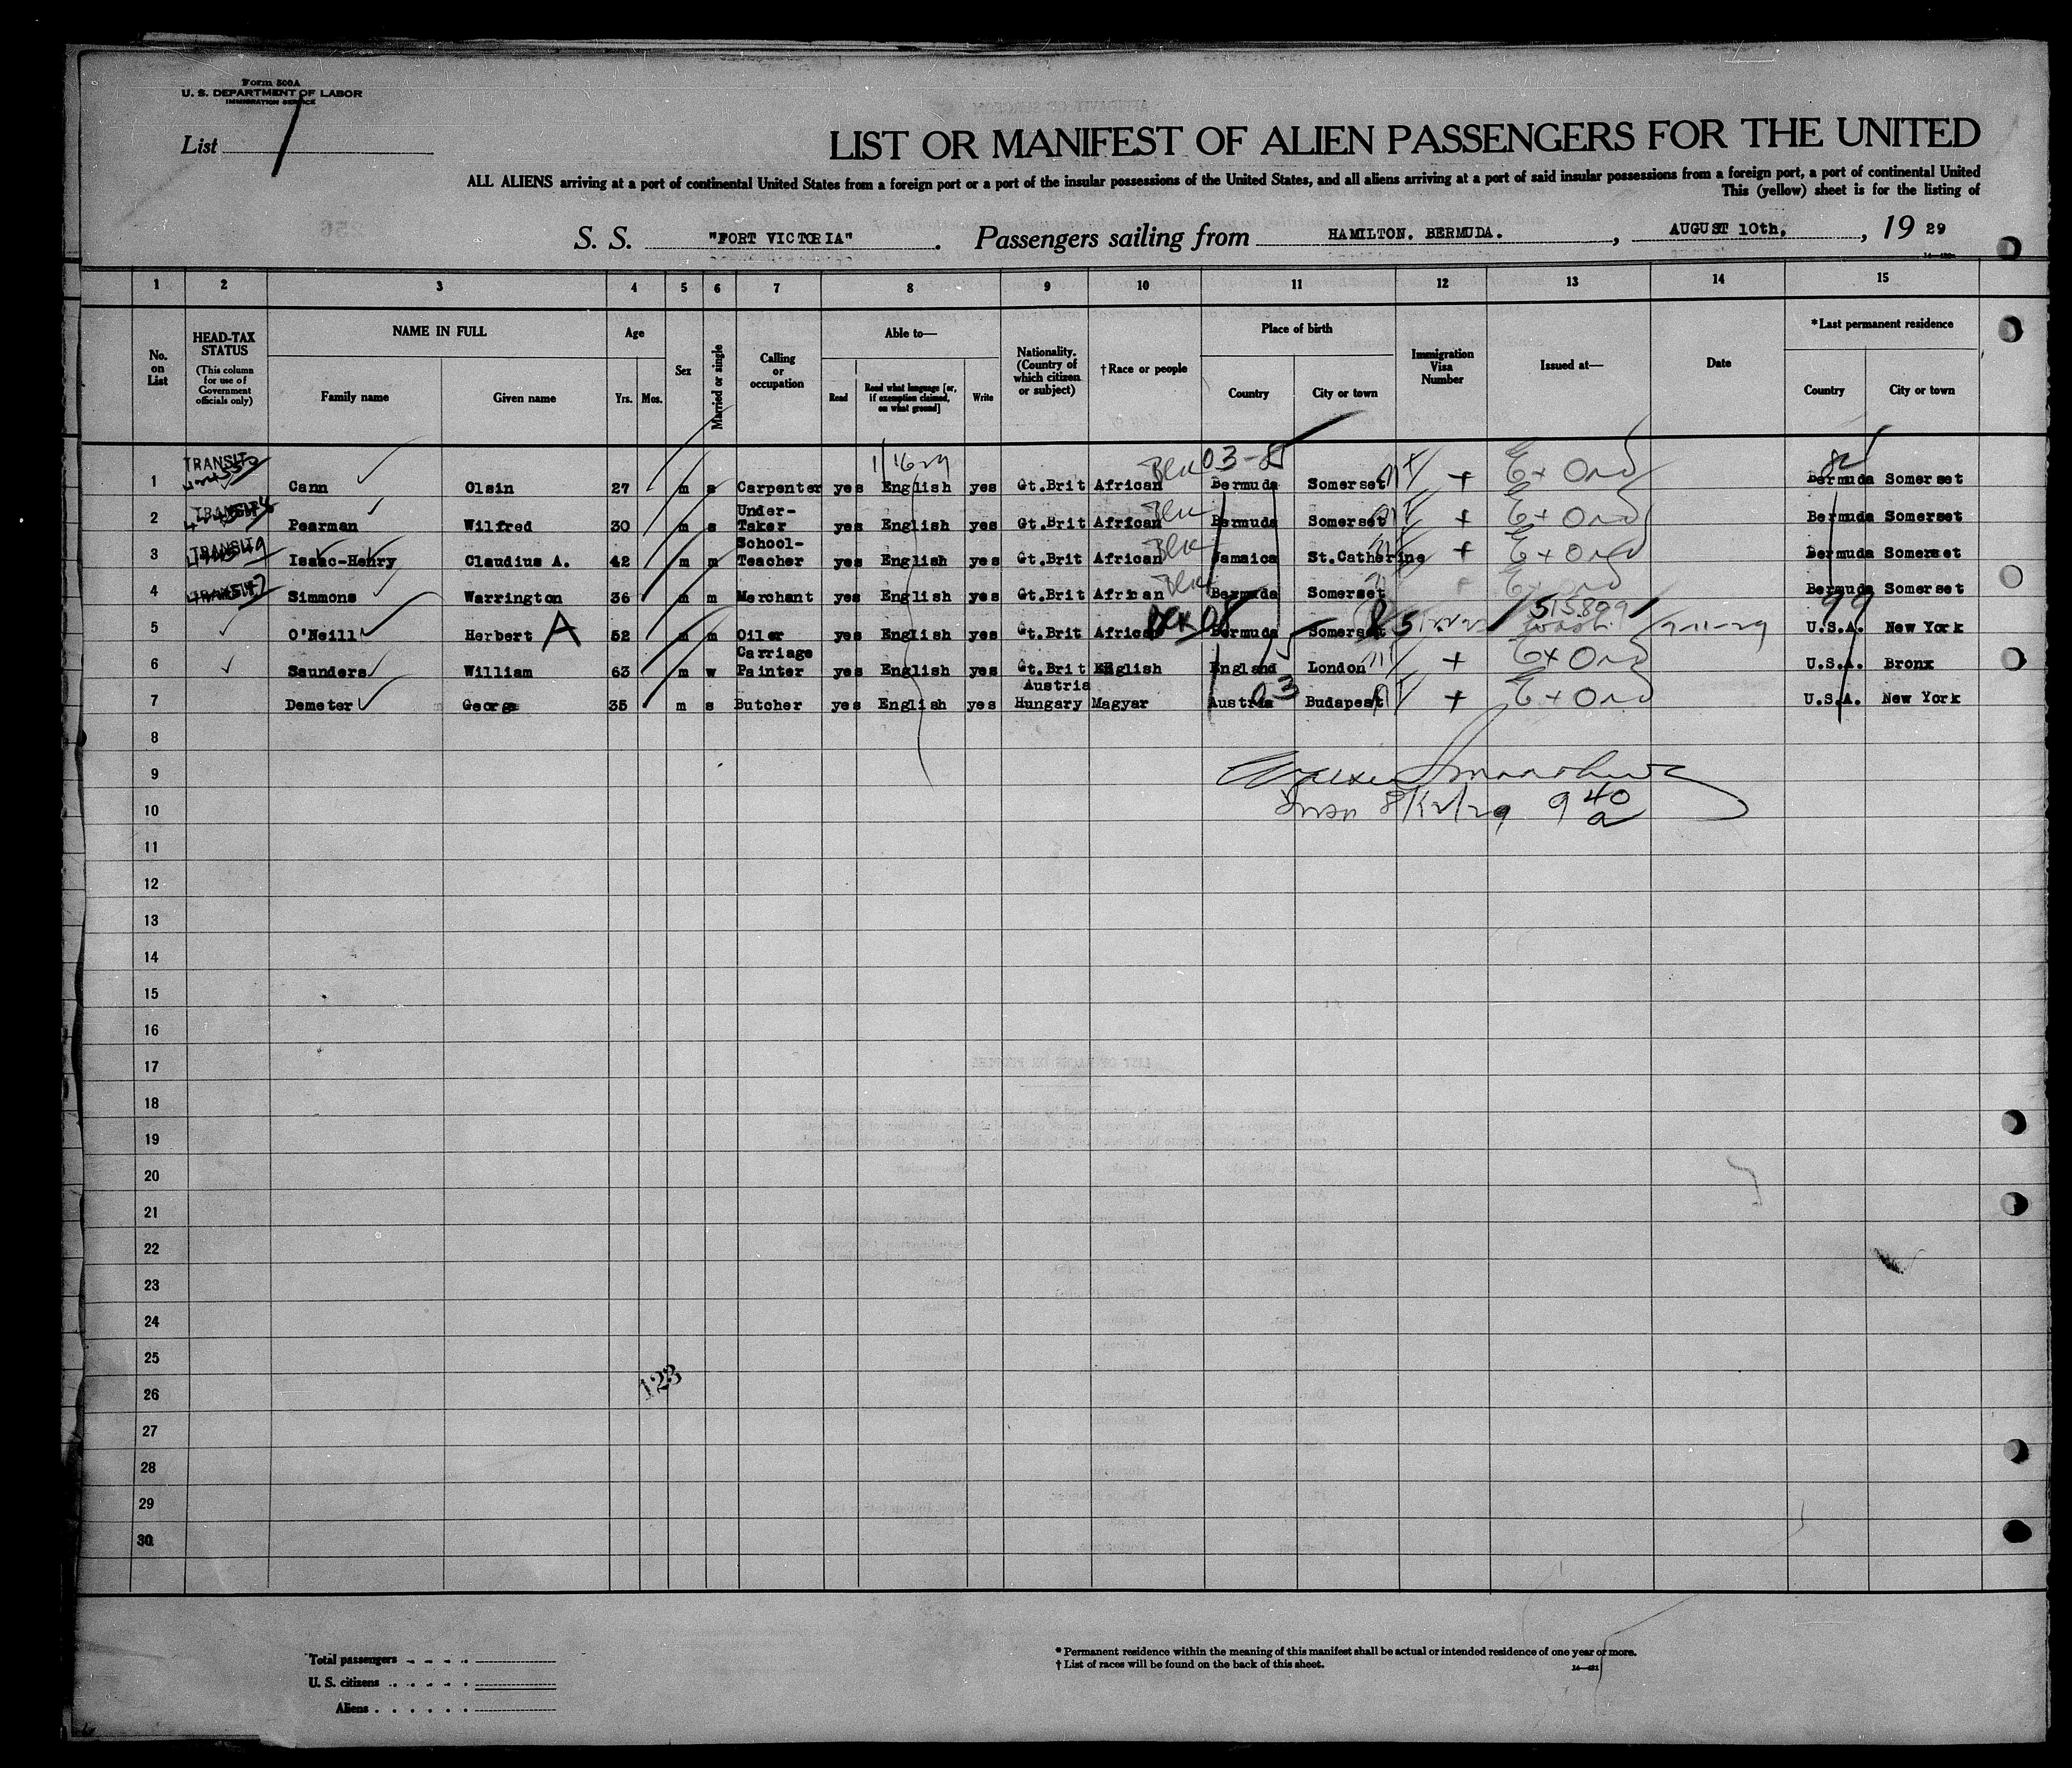 Form 500A
U. S. DEPARTMENT OF LABOR
IMMIGRATION SERVICE
List
LIST OR MANIFEST OF ALIEN PASSENGERS FOR THE UNITED
ALL ALIENS arriving at a port of continental United States from a foreign port or a port of the insular possessions of the United States, and all aliens arriving at a port of said insular possessions from a foreign port, a port of continental United
This (yellow) sheet is for the listing of
S. S. "FORT VICTORIA" . Passengers sailing from HAMILTON. BERMUDA. , AUGUST 10th. , 19 29
1 2 3 4 5 6 7 8 9 10 11 12 13 14 15
No. on List
HEAD-TAX STATUS (This column for use of Government officials only)
NAME IN FULL
Family name Given name
Age
Yrs. Mos.
Sex
Married or single
Calling or occupation
Able to—
Read Read what language [or, if exemption claimed, on what ground] Write
Nationality. (Country of which citizen or subject)
†Race or people
Place of birth
Country City or town
Immigration Visa Number
Issued at—
Date
*Last permanent residence
Country City or town
1 TRANSIT Cann Olsin 27 m s Carpenter yes English yes Gt.Brit African Blk 03-85 Bermuda Somerset + Ex Ord Bermuda Somerset
2 TRANSIT Pearman Wilfred 30 m s Under-Taker yes English yes Gt.Brit African Blk Bermuda Somerset + Ex Ord Bermuda Somerset
3 TRANSIT Isaac-Henry Claudius A. 42 m m School-Teacher yes English yes Gt.Brit African Blk Jamaica St.Catherine + Ex Ord Bermuda Somerset
4 TRANSIT Simmons Warrington 36 m m Merchant yes English yes Gt.Brit African Blk Bermuda Somerset + Ex Ord Bermuda Somerset
5 O'Neill Herbert A 52 m m Oiler yes English yes Gt.Brit African Blk Bermuda Somerset 515899 U.S.A. New York
6 Saunders William 63 m w Carriage Painter yes English yes Gt.Brit English England London + Ex Ord U.S.A. Bronx
7 Demeter George 35 m s Butcher yes English yes Austria Hungary Magyar Austria 03 Budapest + Ex Ord U.S.A. New York
8
9
10 8/12/29 9 40 a
11
12
13
14
15
16
17
18
19
20
21
22
23
24
25
26 123
27
28
29
30
Total passengers
U. S. citizens
Aliens
* Permanent residence within the meaning of this manifest shall be actual or intended residence of one year or more.
† List of races will be found on the back of this sheet.